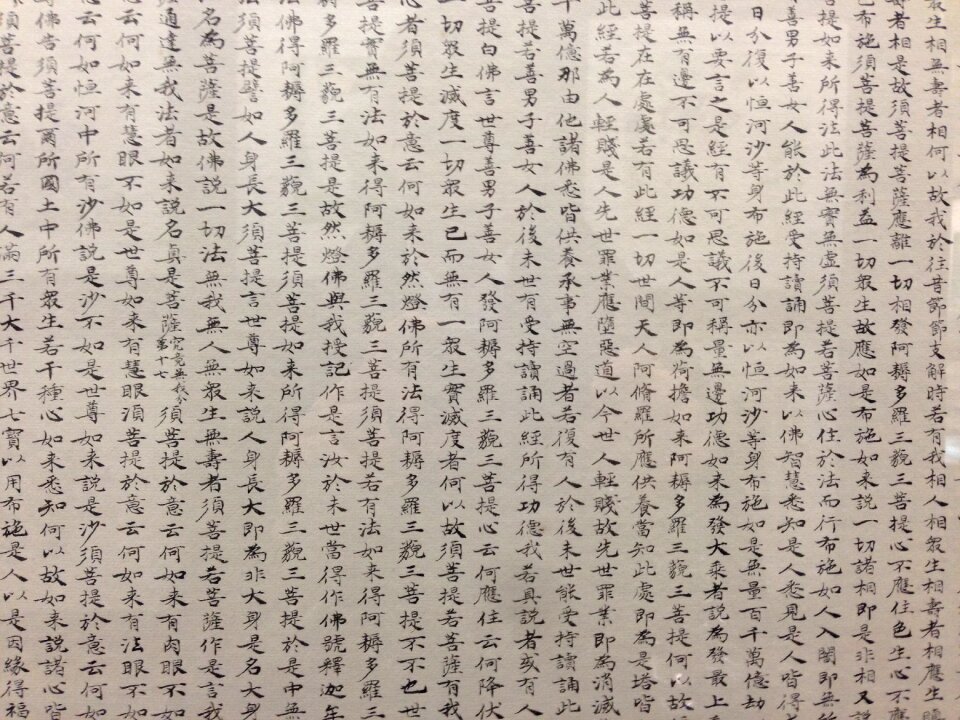 眾生相無壽者相何以故我於往昔節節支解時若有我相人相眾生相壽者相應生瞋
壽者相是故須菩提菩薩應離一切相發阿耨多羅三藐三菩提心不應住色生心不應
色布施須菩提菩薩為利益一切眾生故應如是布施如来說一切諸相即是非相又說
菩提如来所得法此法無實無虛須菩提若菩薩心住於法而行布施如人入闇即無所
善男子善女人能於此經受持讀誦即為如来以佛智慧悉知是人悉見是人皆得
日分復以恒河沙等身布施後日分亦以恒河沙等身布施如是無量百千萬億劫
提以要言之是經有不可思議不可稱量無邊功德如来為發大乘者說為發最上
稱無有邊不可思議功德如是人等即為荷擔如来阿耨多羅三藐三菩提何以故
菩提在在處處若有此經一切世間天人阿脩羅所應供養當知此處即為是塔皆
此經若為人輕賤是人先世罪業應墮惡道以今世人輕賤故先世罪業即為消滅
千萬億那由他諸佛悉皆供養承事無空過者若復有人於後末世能受持讀誦此
提若善男子善女人於後末世有受持讀誦此經所得功德我若具說者或有人
菩提白佛言世尊善男子善女人發阿耨多羅三藐三菩提心云何應住云何降伏
一切眾生滅度一切眾生已而無有一眾生實滅度者何以故須菩提若菩薩有我
心者須菩提於意云何如来於然燈佛所有法得阿耨多羅三藐三菩提不不也世
菩提實無有法如来得阿耨多羅三藐三菩提須菩提若有法如来得阿耨多羅三
多羅三藐三菩提是故然燈佛與我授記作是言汝於来世當得作佛號釋迦牟
佛得阿耨多羅三藐三菩提須菩提如来所得阿耨多羅三藐三菩提於是中無
須菩提譬如人身長大須菩提言世尊如来說人身長大即為非大身是名大身
名為菩薩是故佛說一切法無我無人無眾生無壽者須菩提若菩薩作是言我
通達無我法者如来說名真是菩薩究竟無我分第十七須菩提於意云何如来有肉眼不如
云何如来有慧眼不如是世尊如来有慧眼須菩提於意云何如来有法眼不如
云何如恒河中所有沙佛說是沙不如是世尊如来說是沙須菩提於意云何如
佛告須菩提爾所國土中所有眾生若干種心如来悉知何以故如来說諸心皆
須菩提於意云何若有人滿三千大千世界七寶以用布施是人以是因緣得福